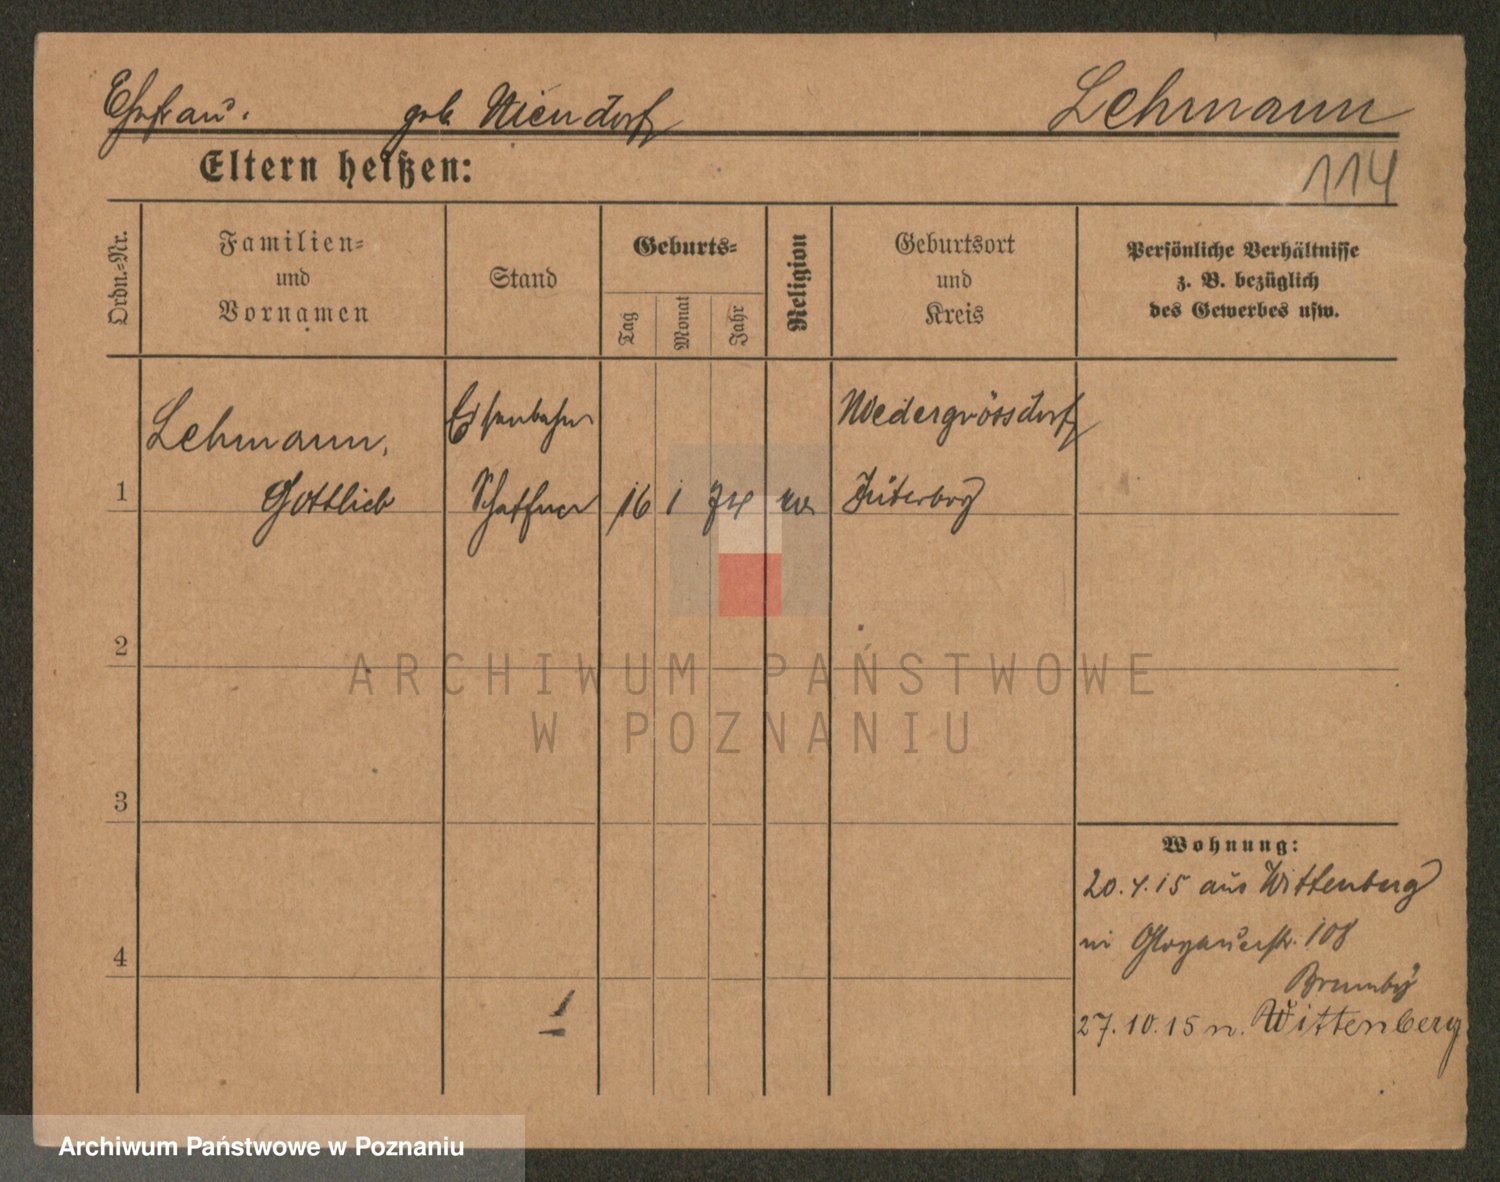 Ehefrau. geb. Niendorf Lehmann
Eltern heißen:
114
Ordn.=Nr.
Familien=
und
Vornamen
Stand
Geburts=
Tag
Monat
Jahr
Religion
Geburtsort
und
Kreis
Persönliche Verhältnisse
z. B. bezüglich
des Gewerbes usw.
1
Lehmann,
Gottlieb
Eisenbahn
Schaffner
16 1 74 ev
Niedergörssdorf
Jüterbog
2
3
4
1
Wohnung:
20.4.15 aus Wittenberg
in Glogauerstr. 108
27.10.15 n. Wittenberg
ARCHIWUM PAŃSTWOWE
W POZNANIU
Archiwum Państwowe w Poznaniu